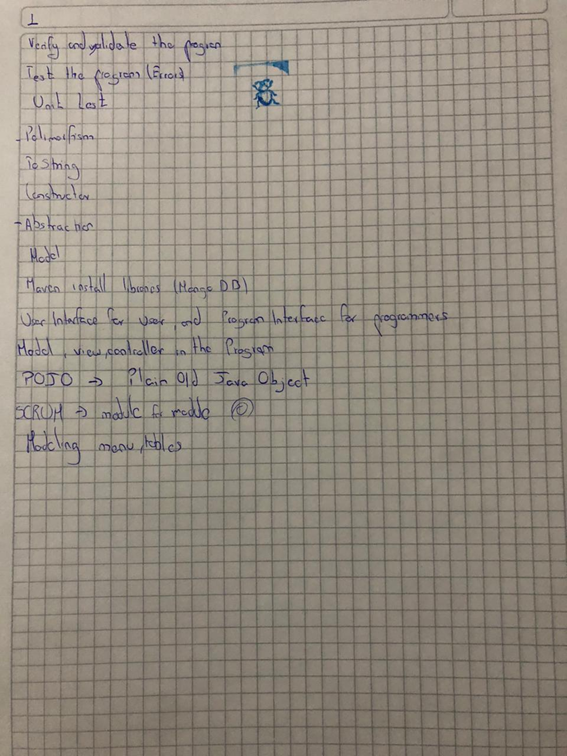 1
Verify and validate the program
Test the program (Errors)
Unit test
- Polimorfism
ToString
Constructor
- Abstraction
Model
Maven install libraries (Mongo DB)
User Interface for User, and Program Interface for programmers
Model, view, controller in the Program
POJO → Plain Old Java Object
SCRUM → module for module
Modeling menu, tables